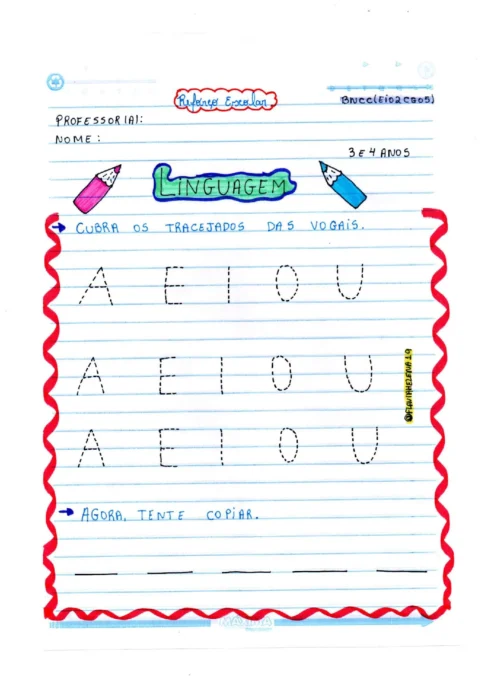 Reforço Escolar
BNCC(EI02CG05)
PROFESSOR(A):
NOME:
3 E 4 ANOS
LINGUAGEM
CUBRA OS TRACEJADOS DAS VOGAIS.
A E I O U
A E I O U
@FLAVIAHELENIA19
A E I O U
AGORA, TENTE COPIAR.
MÁXIMA